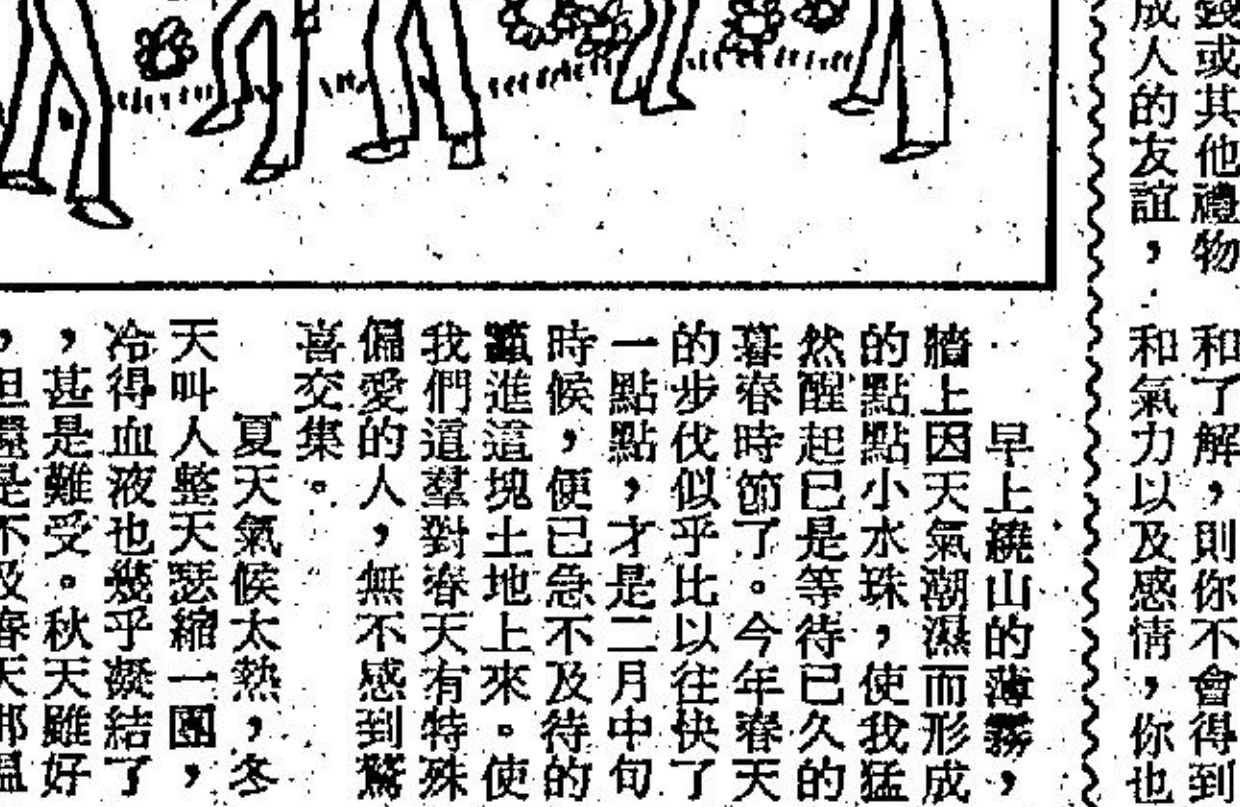 錢或其他禮物
成人的友誼,
和了解,則你不會得到
和氣力以及感情,你也
早上繞山的薄霧,
牆上因天氣潮濕而形成
的點點小水珠,使我猛
然醒起已是等待已久的
暮春時節了。今年春天
的步伐似乎比以往快了
一點點,才是二月中旬
時候,便已急不及待的
進這塊土地上來。使
我們這羣對春天有特殊
偏愛的人,無不感到驚
喜交集。
夏天氣候太熱,冬
天叫人整天瑟縮一團,
冷得血液也幾乎凝結了
,甚是難受。秋天雖好
,但還是不及春天那溫